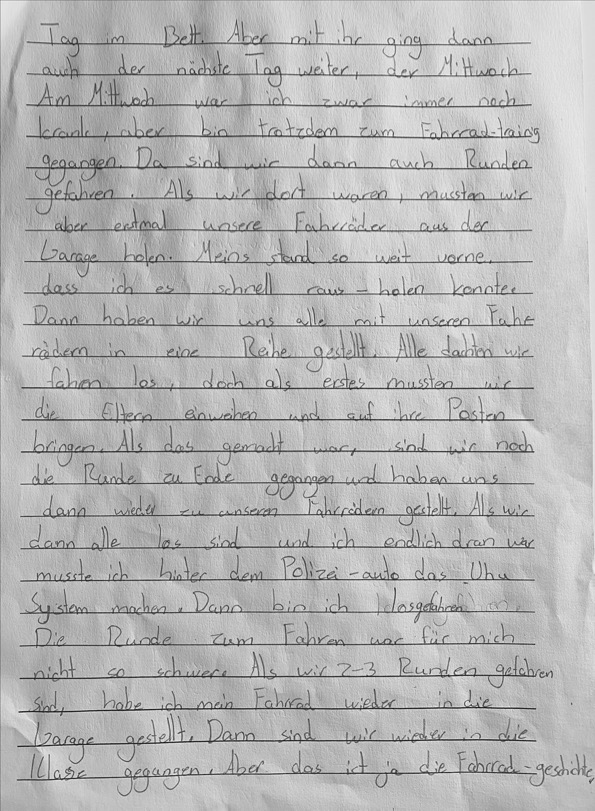 Tag im Bett. Aber mit ihr ging dann
auch der nächste Tag weiter, der Mittwoch
Am Mittwoch war ich zwar immer noch
krank, aber bin trotzdem zum Fahrrad-traing
gegangen. Da sind wir dann auch Runden
gefahren. Als wir dort waren, mussten wir
aber erstmal unsere Fahrräder aus der
Garage holen. Meins stand so weit vorne,
dass ich es schnell raus-holen konnte.
Dann haben wir uns alle mit unseren Fahr
rädern in eine Reihe gestellt. Alle dachten wir
fahren los, doch als erstes mussten wir
die Eltern einweihen und auf ihre Posten
bringen. Als das gemacht war, sind wir noch
die Runde zu Ende gegangen und haben uns
dann wieder zu unseren Fahrrädern gestellt. Als wir
dann alle los sind und ich endlich dran war
musste ich hinter dem Polizei-auto das Uhu
System machen. Dann bin ich losgefahren
Die Runde zum Fahren war für mich
nicht so schwer. Als wir 2-3 Runden gefahren
sind, habe ich mein Fahrrad wieder in die
Garage gestellt. Dann sind wir wieder in die
Klasse gegangen. Aber das ist ja die Fahrrad-geschichte,